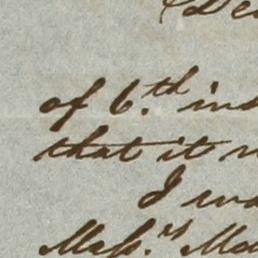 of 6.th ins
that it
I wa
Mess.rs Ma